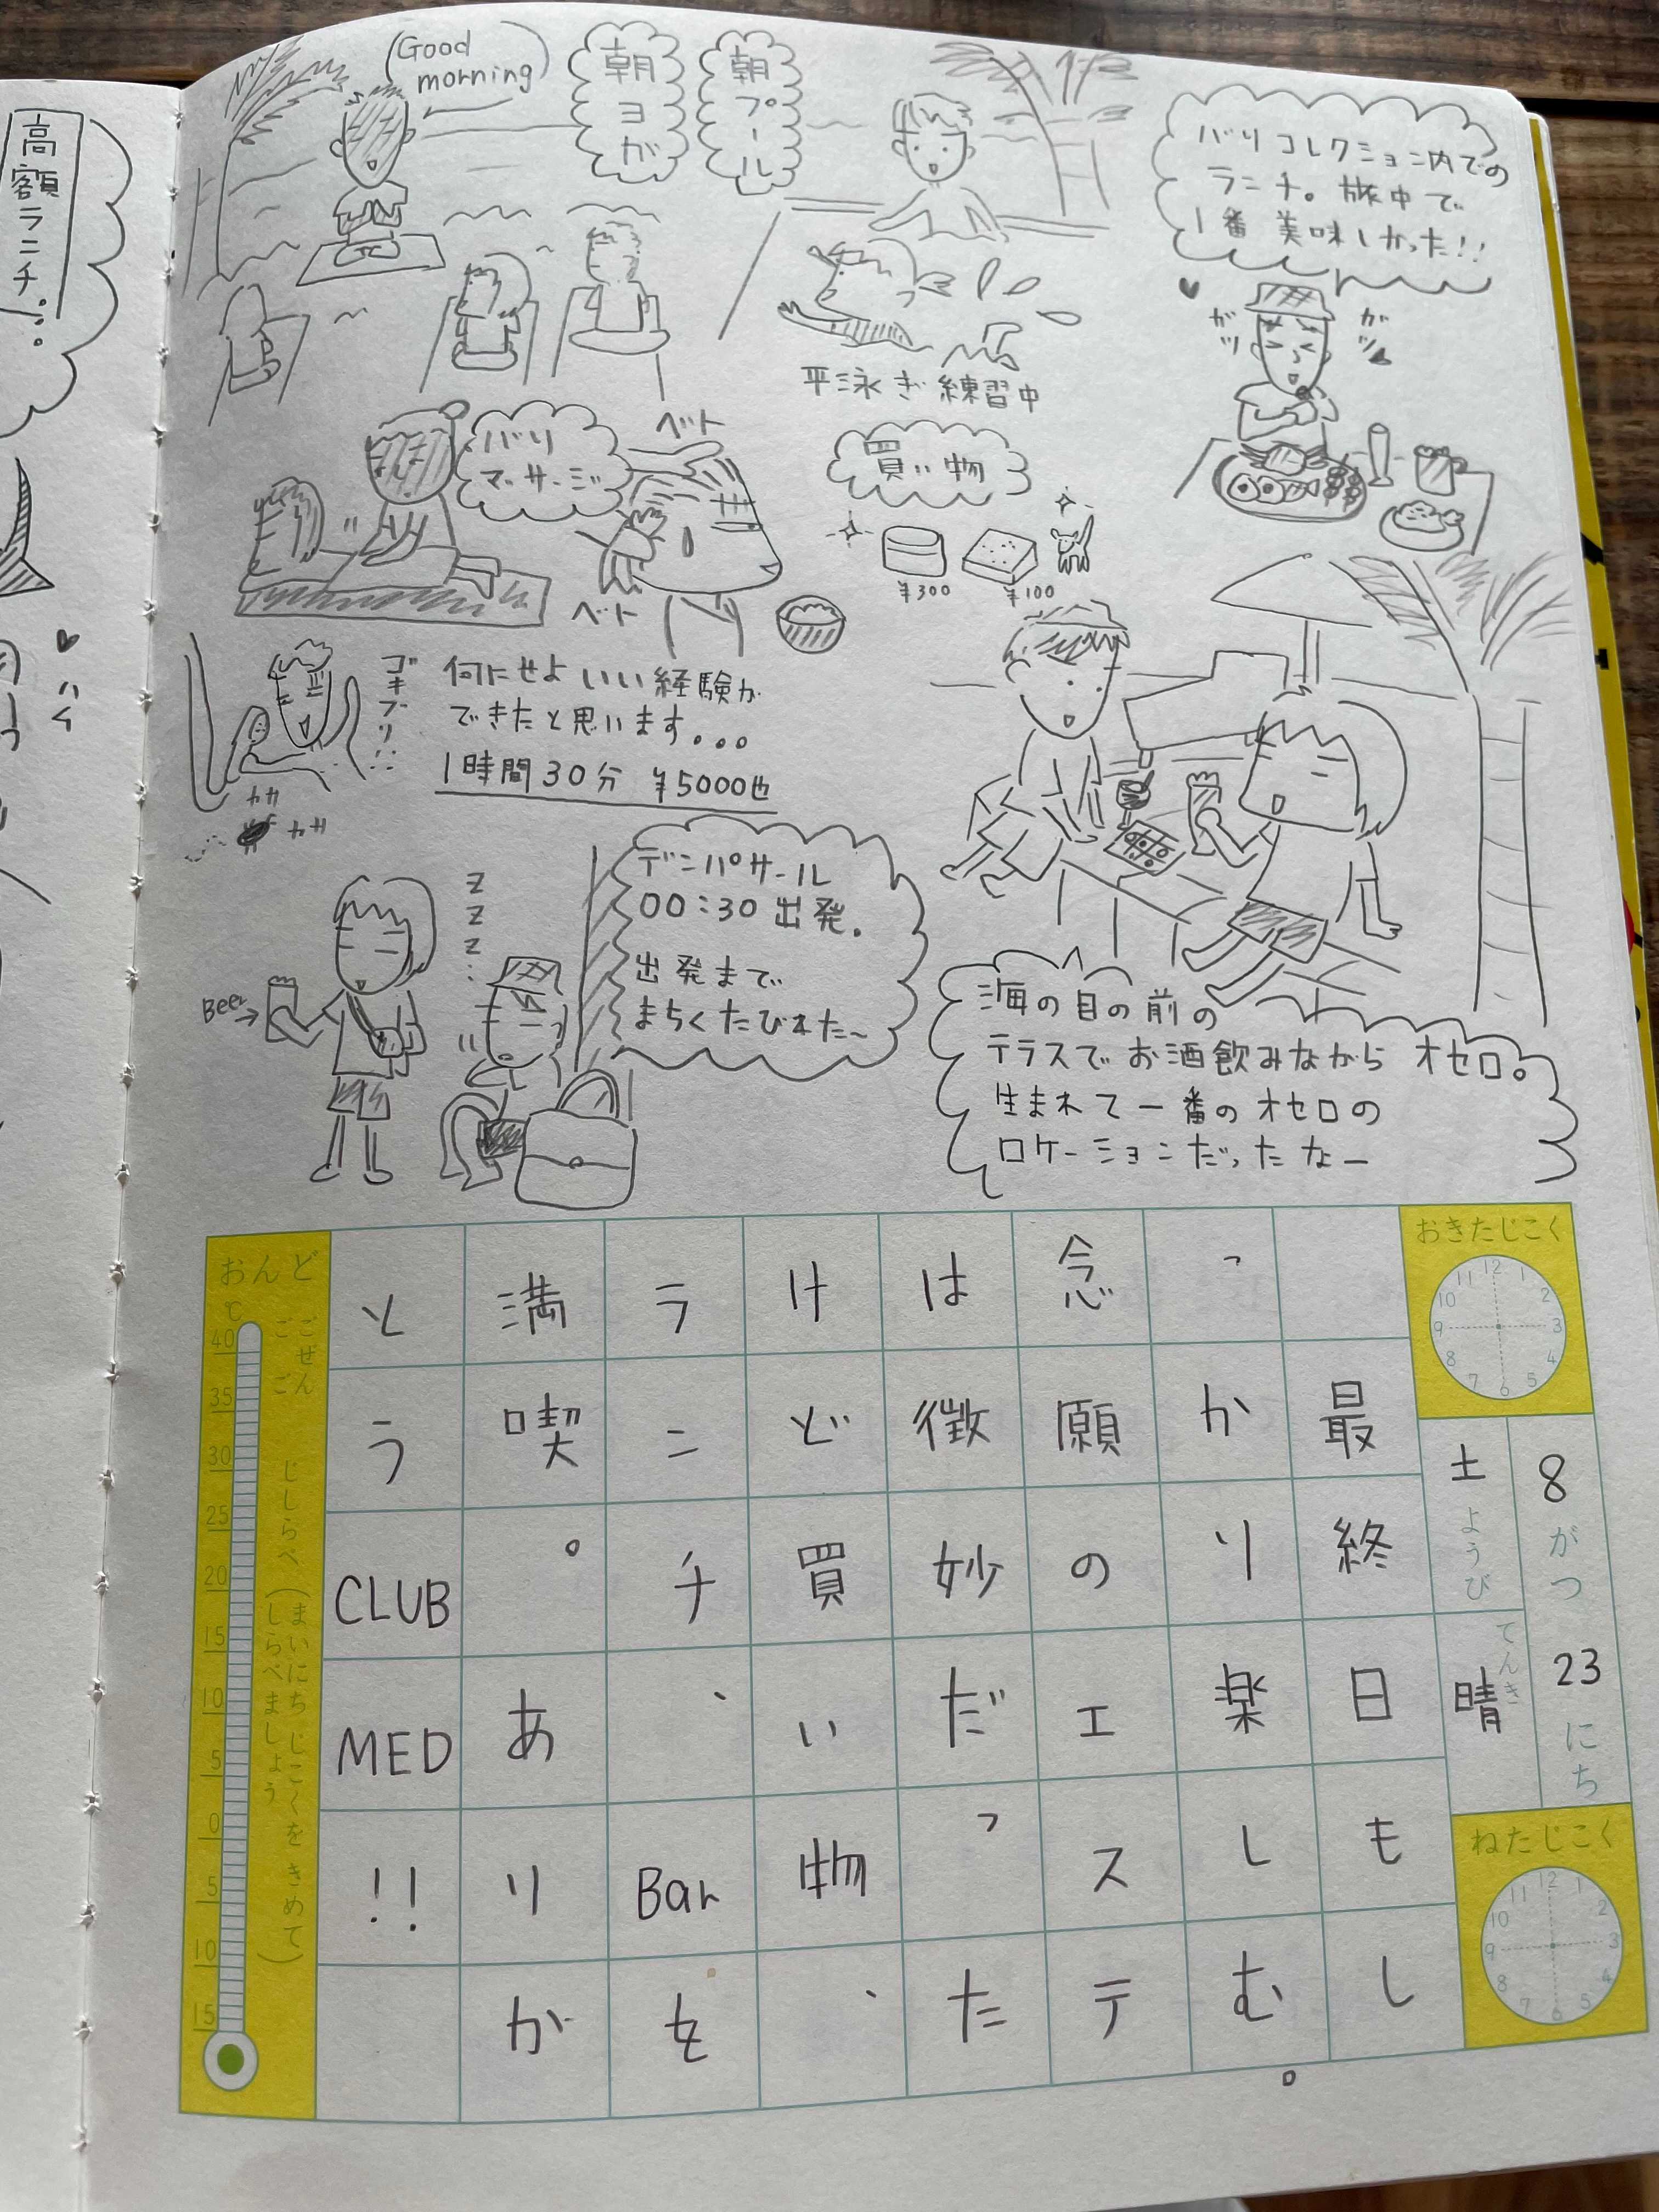 高額ランチ...
Good
morning
朝ヨガ
朝プール
バリコレクション内での
ランチ。旅中で
1番美味しかった!!
ガツ
ガツ
平泳ぎ練習中
バリ
マッサージ
ベト
ベト
買い物
¥300
¥100
ゴキブリ...
カサ
カサ
何にせよいい経験が
できたと思います。。。
1時間30分 ¥5000也
デンパサール
00:30出発。
出発まで
まちくたびれた〜
Beer→
ZZZ...
海の目の前の
テラスでお酒飲みながらオセロ。
生まれて一番のオセロの
ロケーションだったなー
おきたじこく
12 1 2 3 4 5 6 7 8 9 10 11
8がつ23にち
土ようび
てんき
晴
ねたじこく
12 1 2 3 4 5 6 7 8 9 10 11
最終日もし
っかり楽しむ。
念願のエステ
は微妙だった
けど買い物、
ランチ、Barを
満喫。ありが
とうCLUB MED!!
おんど
℃
ごぜん
ごご
じしらべ(まいにちじこくをきめて
しらべましょう)
40
35
30
25
20
15
10
5
0
5
10
15